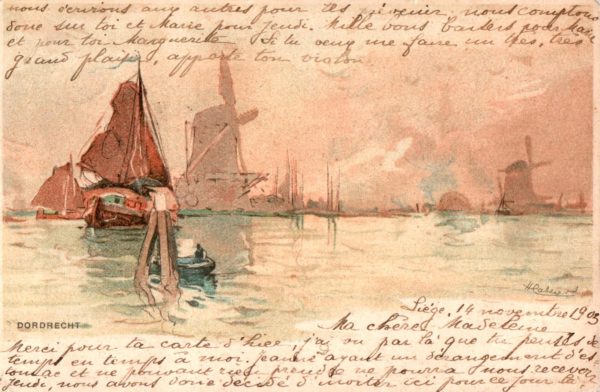 nous écrivons aux autres pour les prévenir, nous comptons
donc sur toi et Marie pour jeudi. Mille bons baisers pour Marie
et pour toi Marguerite Si tu veux me faire un très, très
grand plaisir, apporte ton violon
H Cassiers
DORDRECHT
Liège, 14 novembre 1903
Ma chère Madeleine
Merci pour la carte d'hier, j'ai vu par là que tu penses de
temps en temps à moi. Jeanne ayant un dérangement d'es
tomac et ne pouvant rien prendre ne pourra nous recevoir
jeudi, nous avons donc décidé d'inviter ici pour ce jour là,